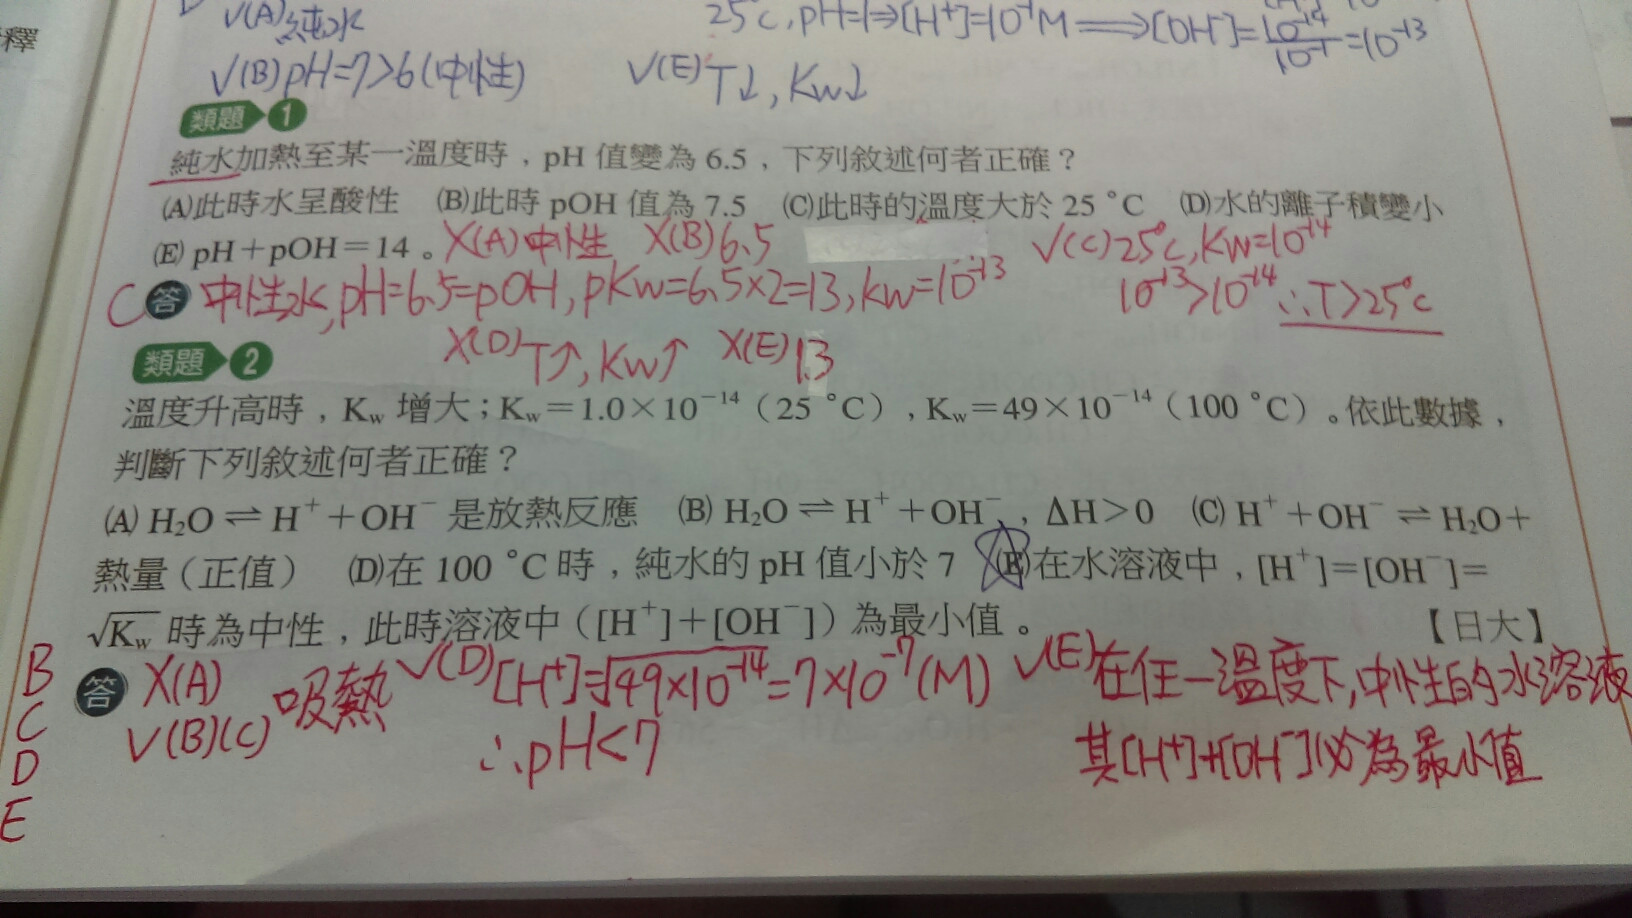 釋
V(A)純水
25℃,pH=1⇒[H⁺]=10⁻¹M⟹[OH⁻]=10⁻¹⁴/10⁻¹=10⁻¹³
V(B)pH=7>6(中性) V(E)T↓,Kw↓
類題 1
純水加熱至某一溫度時，pH 值變為 6.5，下列敘述何者正確？
(A)此時水呈酸性 (B)此時 pOH 值為 7.5 (C)此時的溫度大於 25 ℃ (D)水的離子積變小
(E) pH＋pOH＝14。X(A)中性 X(B)6.5 V(C)25℃,Kw=10⁻¹⁴
C 答 中性水,pH=6.5=pOH,pKw=6.5×2=13,kw=10⁻¹³ 10⁻¹³>10⁻¹⁴∴T>25℃
X(D)T↑,Kw↑ X(E)13
類題 2
溫度升高時，Kw 增大；Kw＝1.0×10⁻¹⁴（25 ℃），Kw＝49×10⁻¹⁴（100 ℃）。依此數據，
判斷下列敘述何者正確？
(A) H₂O ⇌ H⁺＋OH⁻ 是放熱反應 (B) H₂O ⇌ H⁺＋OH⁻，ΔH＞0 (C) H⁺＋OH⁻ ⇌ H₂O＋
熱量（正值） (D)在 100 ℃ 時，純水的 pH 值小於 7 (E)在水溶液中，[H⁺]＝[OH⁻]＝
√Kw 時為中性，此時溶液中（[H⁺]＋[OH⁻]）為最小值。 【日大】
B C D E
答 X(A) 吸熱 V(D)[H⁺]=√49×10⁻¹⁴=7×10⁻⁷(M) V(E)在任一溫度下,中性的水溶液
V(B)(C) ∴pH<7 其[H⁺]+[OH⁻]必為最小值